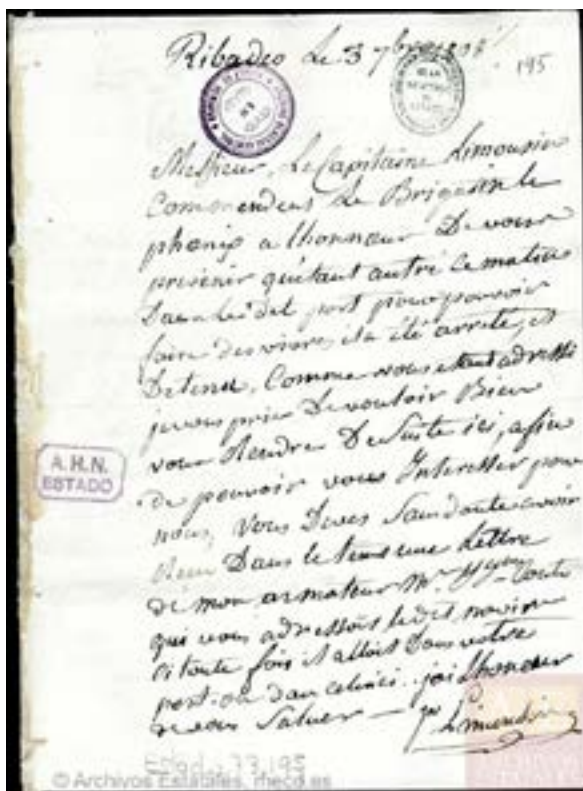 Ribadeo Le 3 7bre
195
Messieur, Le Capitaine Limousin
Commendent Le Brigantin le
phenix a lhonneur De vous
prevenir quétant antré ce matin
Dans led.t port pour pouvoir
faire des vivres, il a été arrété, et
Detenu, Comme vous adressé
je vous prie De vouloir Bien
vous Rendre De Suite ici, afin
de pouvoir vous Interesser pour
nous, Vous Deves Sandoute avoir
Dans le tems une Lettre
de mon armateur Mr
qui vous adressoit ledit navire
si toute fois il alloit Dans votre
port ou dans celuici. jai Lhonneur
de vous Saluer — Limousin
A.H.N.
ESTADO
Estado, 33,195
© Archivos Estatales, mecd.es